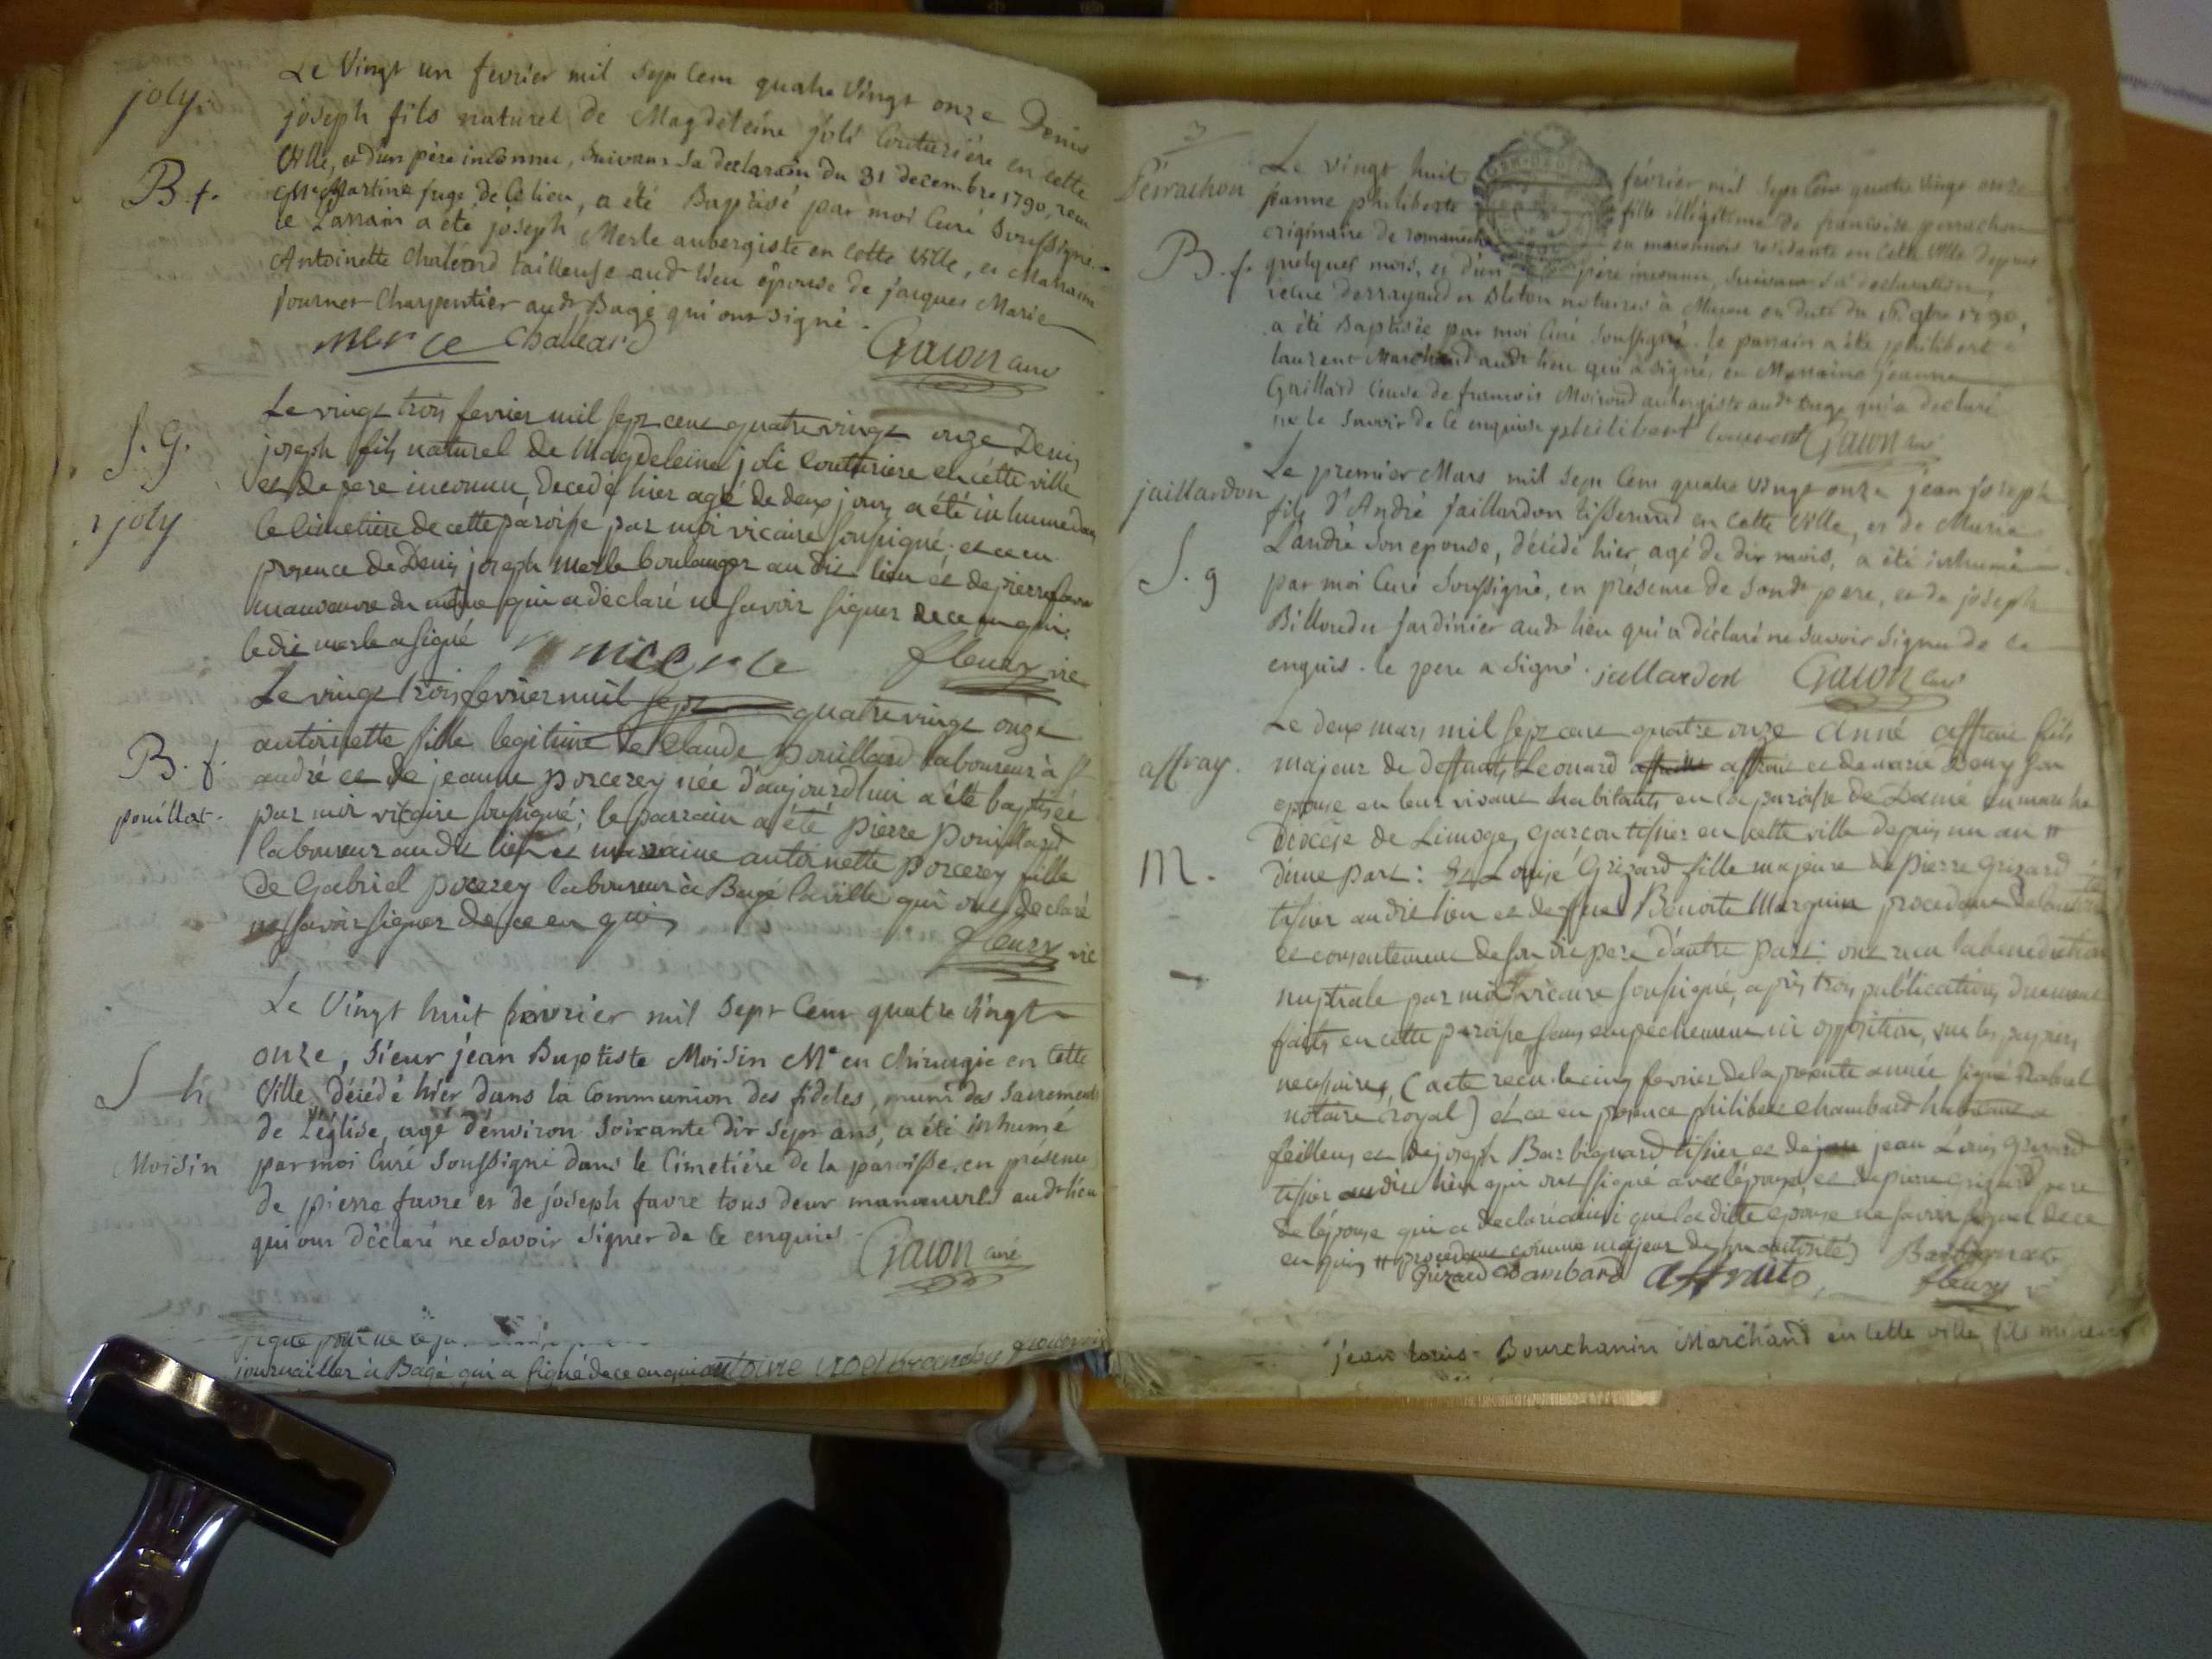 joly.
B. f.
Le Vingt un fevrier mil Sept Cent quatre Vingt onze Denis
joseph fils naturel de Magdeleine joli Couturiére en cette
Ville, et d'un pére inconnu, Suivant Sa declaraōn du 31 decembre 1790, recu
Me Martine juge de Ce lieu, a été Baptisé par moi Curé Soussigné.
le Parrain a été joseph Merle aubergiste en Cette Ville, et Maraine
Antoinette Chaléard tailleuse audt lieu épouse de jacques Marie
fournet Charpentier audt Bagé qui ont signé.
merle Challeard Gacon curé
S. G.
joly
Le vingt trois fevrier mil sept cent quatre vingt onze Denis
joseph fils naturel de Magdeleine joli Couturiere en cette ville
et de pere inconnu, decedé hier agé de deux jours a été inhumé dans
le Cimetiere de cette paroisse par moi vicaire soussigné; et ce en
presence de Denis joseph merle boulanger au dit lieu et de pierre favre
manoeuvre du même qui a declaré ne savoir signer de ce enquis.
le dit merle a signé merle fleury vic
B. f.
pouillat.
Le vingt trois fevrier mil sept quatre vingt onze
antoinette fille legitime de Claude pouillard laboureur à St
andré et de jeanne porcerey née d'aujourdhui a été baptisée
par moi vicaire soussigné; le parrain a été pierre pouillard
laboureur au dit lieu et maraine antoinette porcerey fille
de Gabriel porcerey laboureur à Bagé la ville qui ont declaré
ne savoir signer de ce enquis
fleury vic
S h
Moisin
Le Vingt huit fevrier mil Sept Cent quatre Vingt
onze, Sieur jean Baptiste Moisin Me en Chirurgie en Cette
Ville, décédé hier dans la Communion des fideles, muni des Sacrements
de L'église, agé d'environ Soixante dix Sept ans, a été inhumé
par moi Curé Soussigné dans le Cimetiére de la paroisse, en présence
de pierre favre et de joseph favre tous deux manoeuvres audt lieu
qui ont déclaré ne Savoir Signer de Ce enquis.
Gacon curé
journailler à Bagé qui a signé de ce enquis antoine
Perrachon
B. f.
Le vingt huit février mil Sept Cent quatre Vingt onze
jeanne philiberte fille illégitime de francoise perrachon
originaire de romaneche en maconnois residante en Cette Ville depuis
quelques mois, et d'un pére inconnu, Suivant Sa declaration,
recue Desrayaud et Bleton notaires à Macon en date du 16 9bre 1790,
a été Baptisée par moi Curé Soussigné. le parrain a été philibert
laurent Marchand audt lieu qui a signé, et Marraine jeanne
Gaillard Veuve de francois Moiroud aubergiste audt Bagé qui a declaré
ne le Savoir de Ce enquise philibert laurent Gacon curé
jaillardon
S. g
Le premier Mars mil Sept Cent quatre Vingt onze jean joseph
fils d'André jaillardon tisserand en Cette Ville, et de Marie
Landré Son epouse, décédé hier, agé de dix mois, a été inhumé
par moi Curé Soussigné, en présence de Sondt pere, et de joseph
Billoudet jardinier audt lieu qui a déclaré ne Savoir Signer de ce
enquis. le pere a signé. jallardon Gacon curé
affray.
M.
Le deux mars mil sept cent quatre onze Anné affraie fils
majeur de deffunts Leonard affraie et de marie Deny son
epouse en leur vivant habitants en la paroisse de en marche
Diocèse de Limoges, garcon tissier en cette ville depuis un an #
d'une part: Et Louise Grizard fille majeure de pierre Grizard
tissier au dit lieu et de feue Benoite Marguin procedant de l'autorité
et consentement de son dit pere d'autre part: ont recu la benediction
nuptiale par moi vicaire soussigné, après trois publications duement
faites en cette paroisse sans empechement ni opposition, vue les papiers
necessaires (acte recu le cinq fevrier de la presente année signé
notaire royal) et ce en presence philibert Chambard habitant a
feillens et de joseph Barbignard tissier et de jean Louis Grizard
tissier au dit lieu qui ont signé avec l'époux, et de pierre grizard pere
de l'épouse qui a declaré ainsi que la ditte epouse ne savoir signer de ce
enquis # procedant comme majeur de son autorité)
Grizard Chambard affraito fleury v
jean louis Bourchanin Marchand en Cette ville, fils mineur